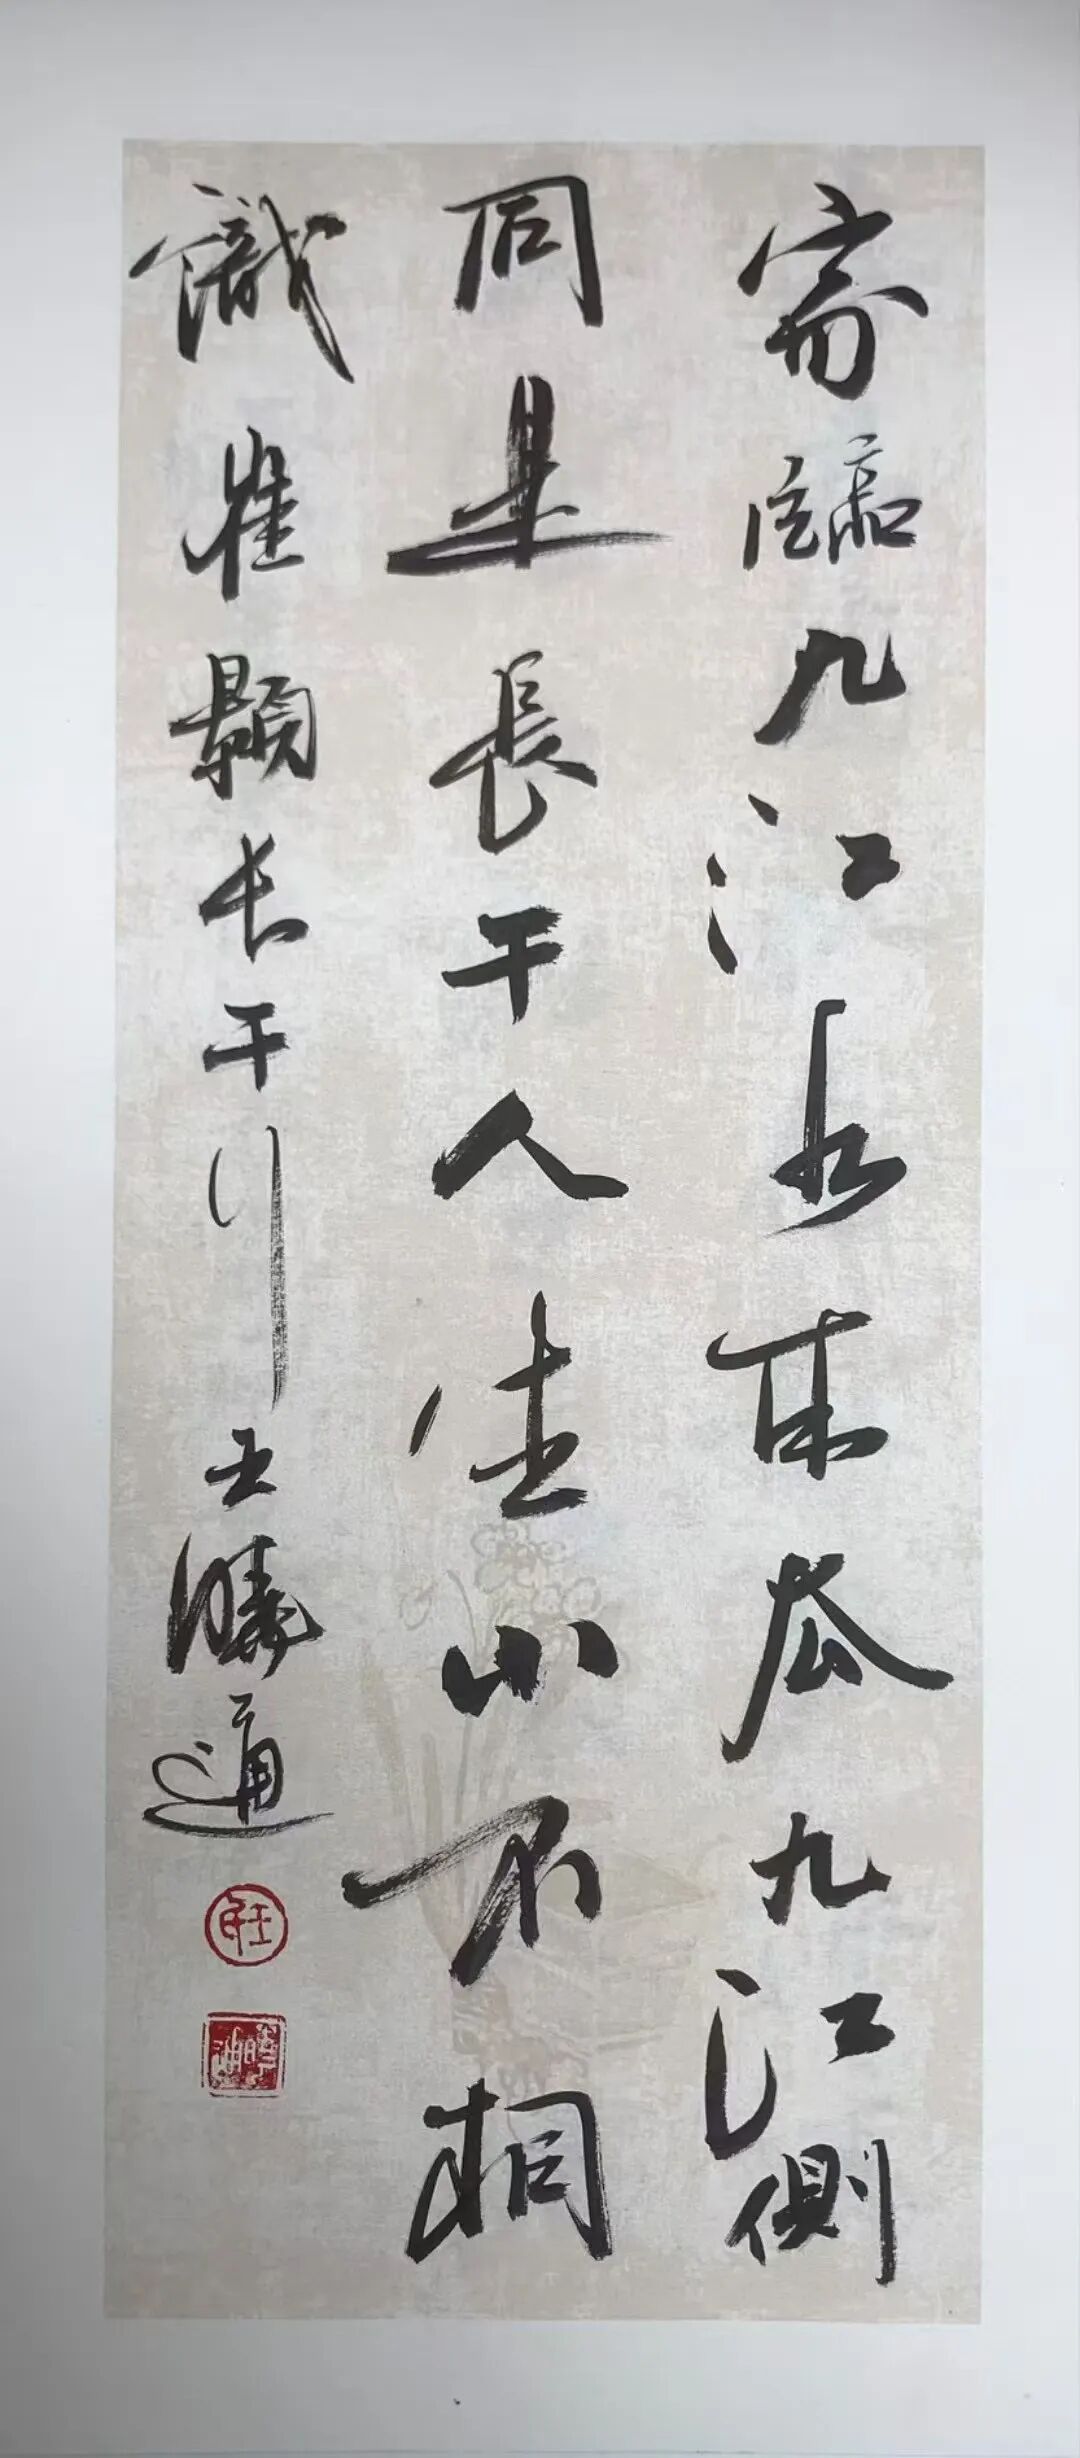 家臨九江水来去九江側
同是長干人生小不相
識崔顥长干行王曉通